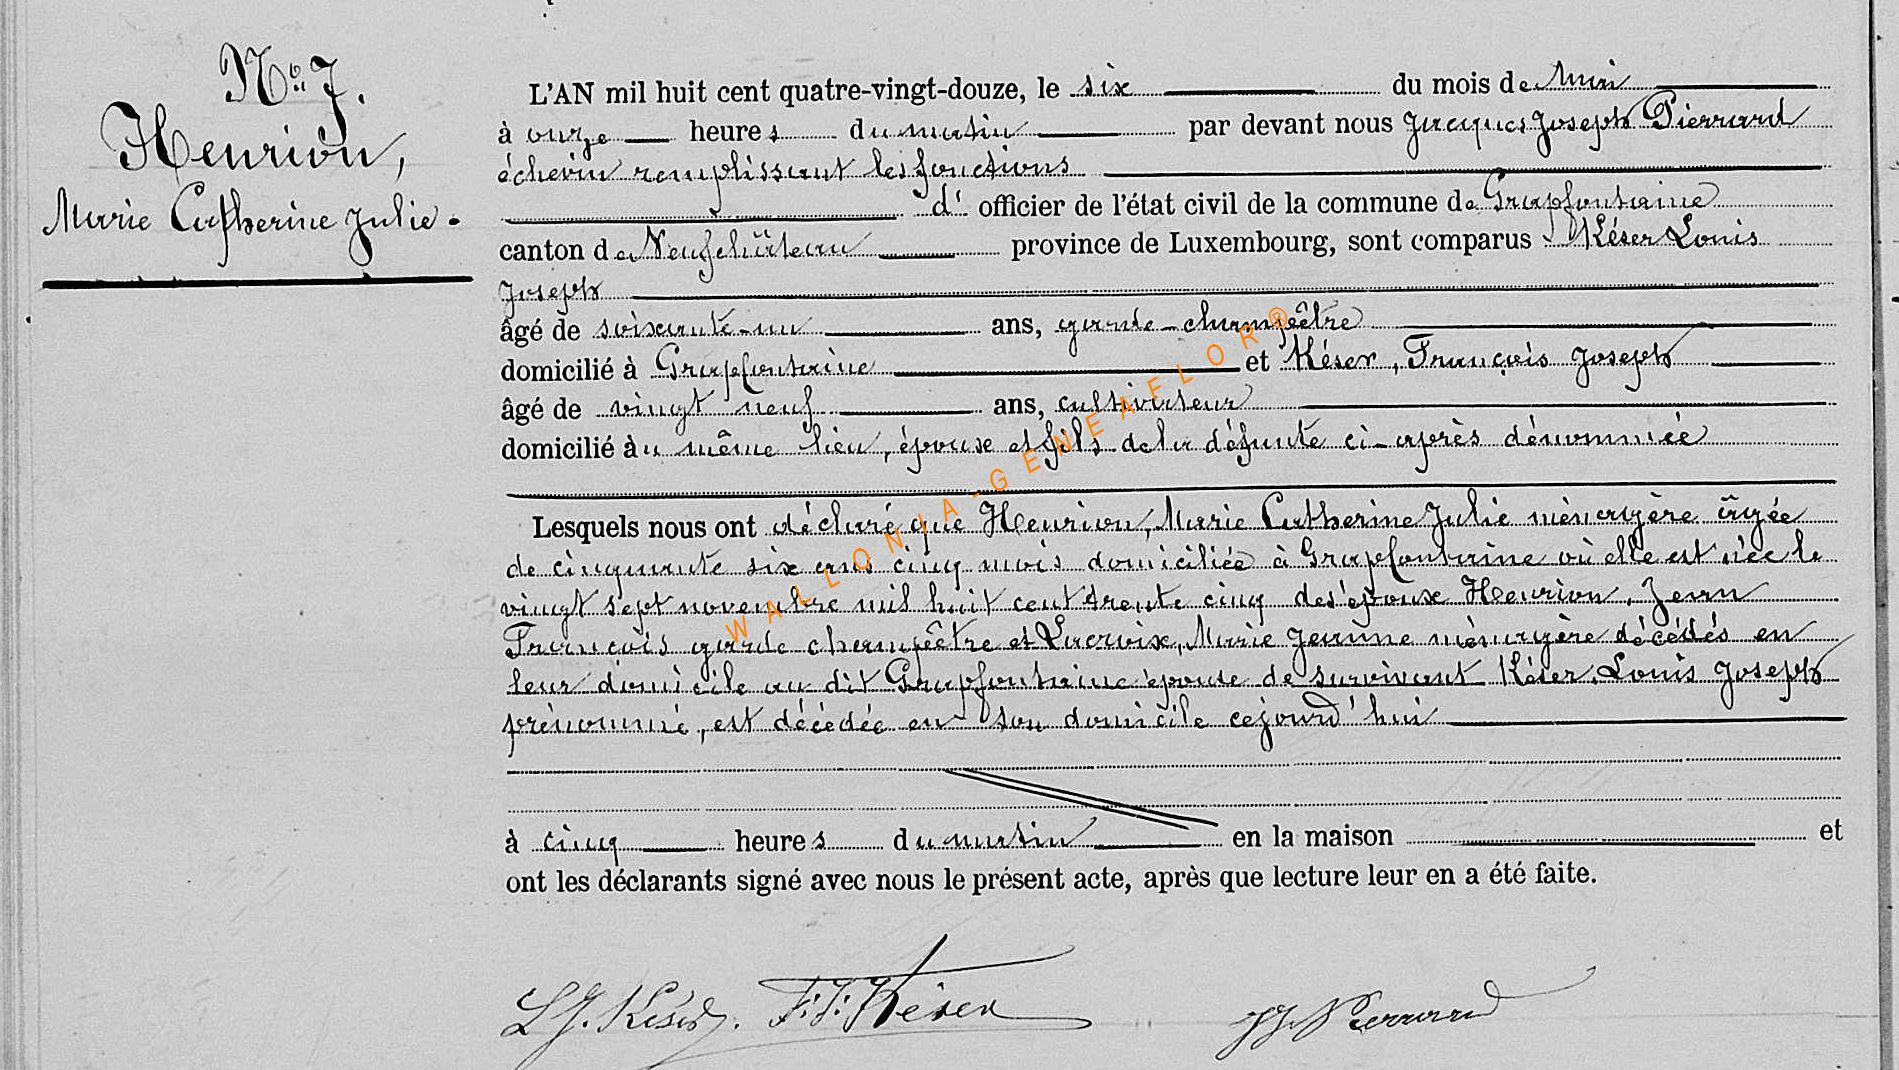 No 7.
Henrion,
Marie Catherine Julie.
L'AN mil huit cent quatre-vingt-douze, le six du mois de Mai
à onze heures du matin par devant nous Jacques Joseph Pierrard
échevin remplissant les fonctions
d' officier de l'état civil de la commune de Grapfontaine
canton de Neufchâteau province de Luxembourg, sont comparus Késer Louis
Joseph
âgé de soixante-un ans, garde-champêtre
domicilié à Grapfontaine et Késer, François Joseph
âgé de vingt neuf ans, cultivateur
domicilié au même lieu, époux et fils de la défunte ci-après dénommée
Lesquels nous ont déclaré que Henrion, Marie Catherine Julie ménagère âgée
de cinquante six ans cinq mois domiciliée à Grapfontaine où elle est née le
vingt sept novembre mil huit cent trente cinq des époux Henrion, Jean
François garde champêtre et Lacroix, Marie Jeanne ménagère décédés en
leur domicile au dit Grapfontaine épouse de survivant Késer Louis Joseph
prénommé, est décédée en son domicile cejourd'hui
à cinq heures du matin en la maison et
ont les déclarants signé avec nous le présent acte, après que lecture leur en a été faite.
L.J. Késer. F.J. Késer JJ Pierrard
WALLONIA-GENEAFLOR®